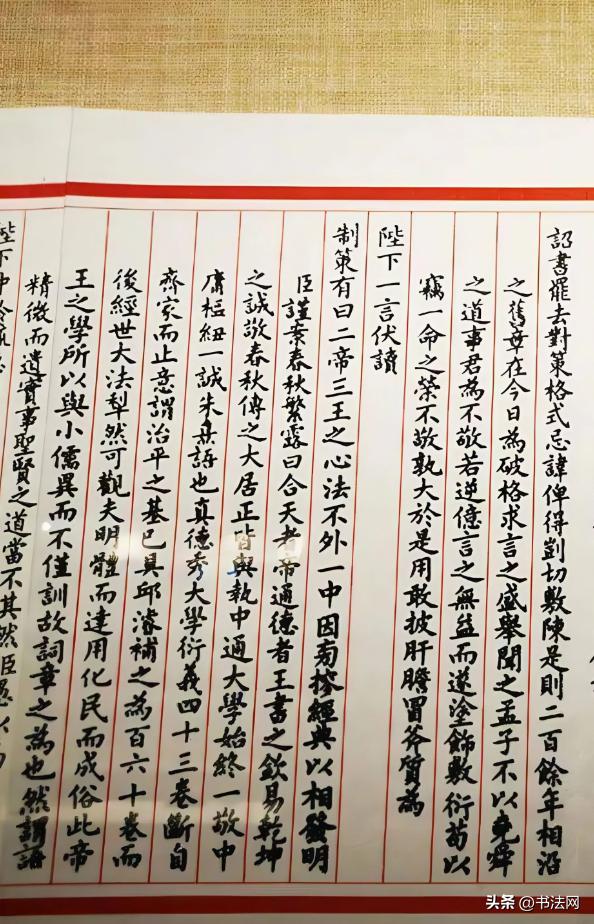 詔書罷去對策格式忌諱俾得剴切敷陳是則二百餘年相沿
之舊弊在今日為破格求言之盛舉聞之孟子不以堯舜
之道事君為不敬若逆億言之無益而遂塗飾敷衍苟以
竊一命之榮不敬孰大於是用敢披肝膽冒斧質為
陛下一言伏讀
制策有曰二帝三王之心法不外一中因旁搜經典以相發明
臣謹案春秋繁露曰合天者帝通德者王書之欽易乾坤
之誠敬春秋傳之大居正皆與執中通大學始終一敬中
庸樞紐一誠朱熹語也真德秀大學衍義四十三卷斷自
齊家而止意謂治平之基已具邱濬補之為百六十卷而
後經世大法犁然可觀夫明體而達用化民而成俗此帝
王之學所以與小儒異而不僅訓故詞章之為也然謂語
精微而遺實事聖賢之道當不其然臣愚以
陛下
头条 @书法网